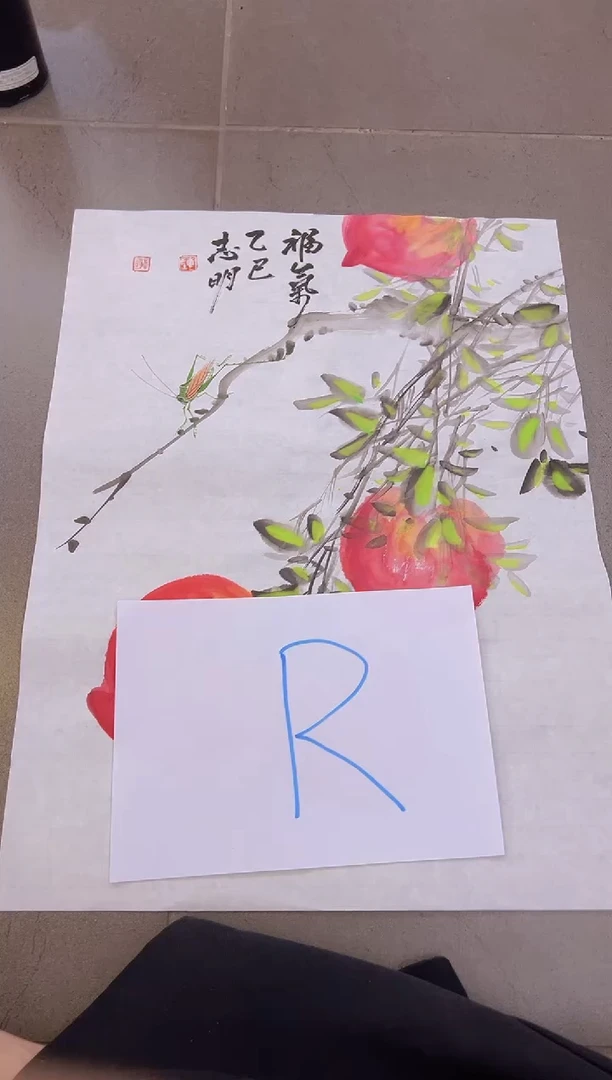 福氣
乙巳
志明
R